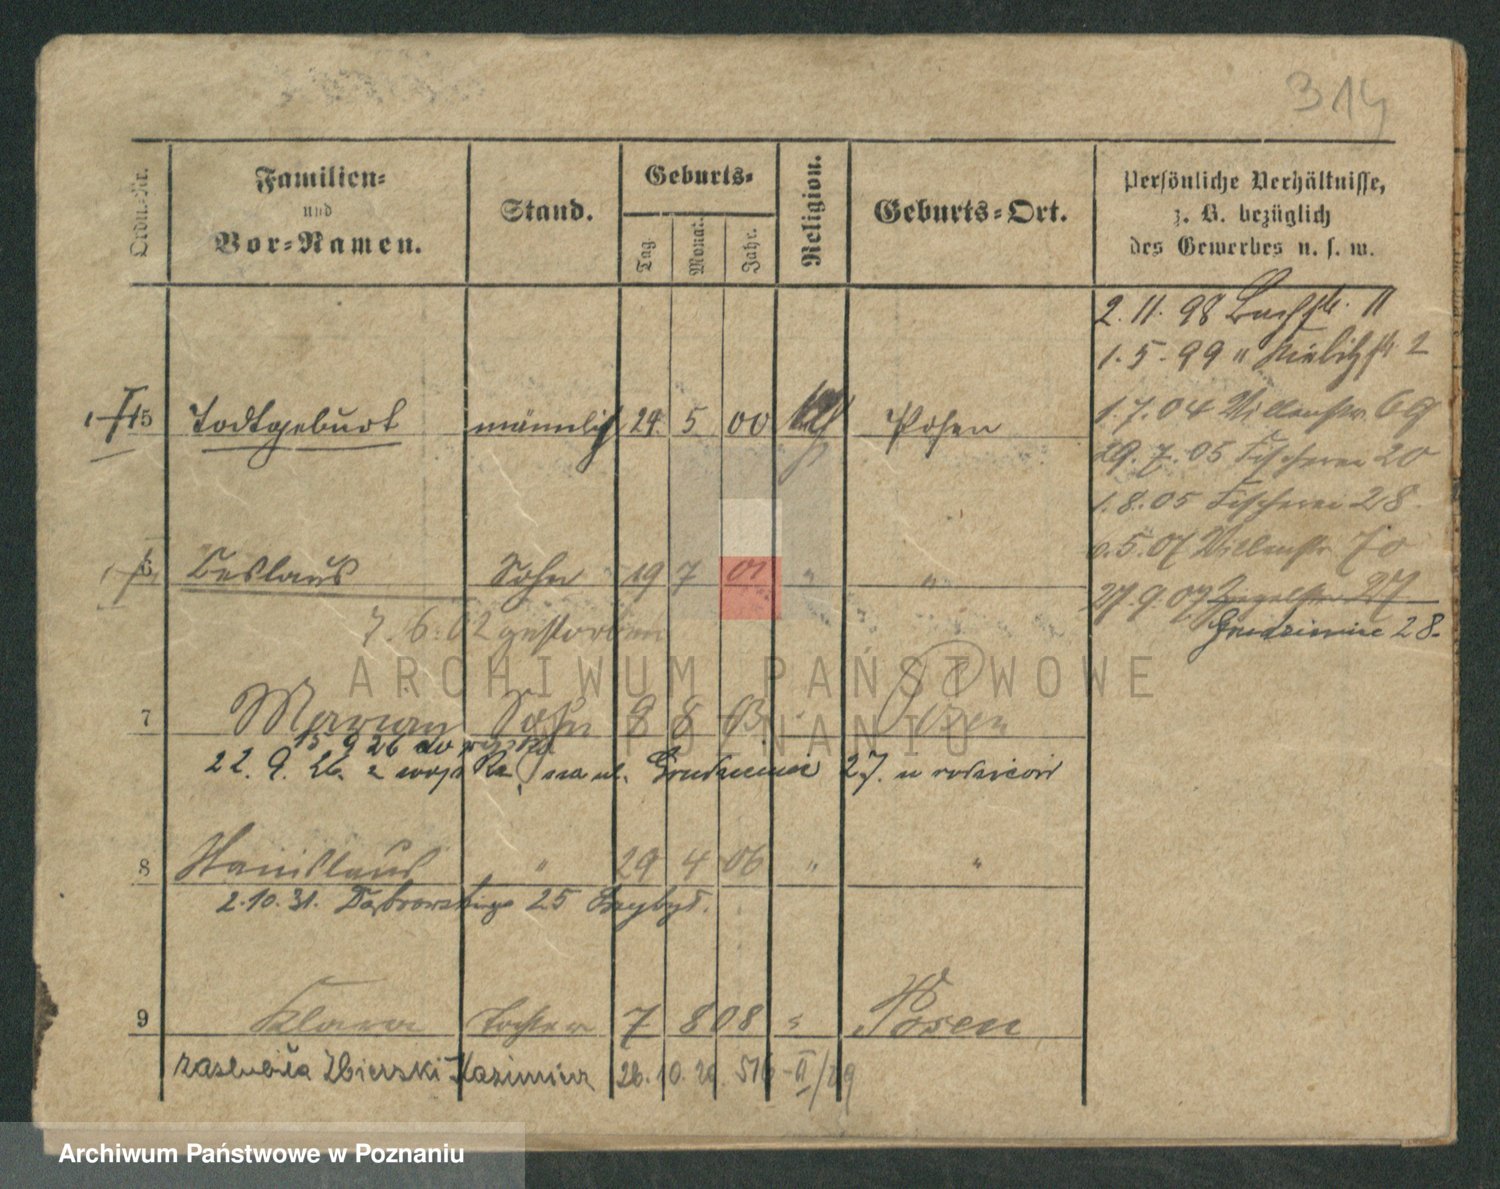 314
Ordn.-Nr.
Familien-
und
Vor-Namen.
Stand.
Geburts-
Tag.
Monat.
Jahr.
Religion.
Geburts-Ort.
Persönliche Verhältnisse,
z. B. bezüglich
des Gewerbes u. s. w.
2. 11. 98 Bachstr. 11
1. 5. 99 " 2
5 Todtgeburt männlich 24 5 00 Posen
1. 7. 04 Wallenstr. 69
29. 7. 05 Fischerei 20
1. 8. 05 Fischerei 28.
5. 07 Wallenstr. 70
6 Ceslaus Sohn 19 7 01 " "
27. 9. 07 27
Grudzieniec 28.
7. 6. 02 gestorben
7 Marian Sohn 8 8 03 " Posen
15 9 26 do wojska
22. 9. 26. z wojska, na ul. Grudzieniec 27. u rodziców
8 Stanislaus " 29 4 06 " "
2. 10. 31. Dąbrowskiego 25
9 Klara Tochter 7 8 08 " Posen
zaślubiła Zbierski Kazimierz 26. 10. 29. 516-II/29
ARCHIWUM PAŃSTWOWE
W POZNANIU
Archiwum Państwowe w Poznaniu